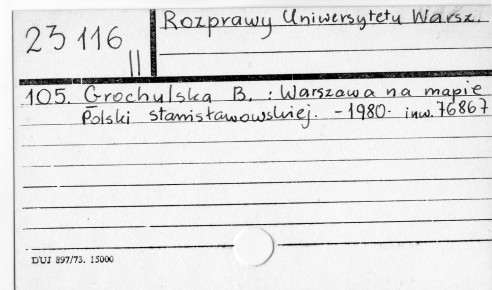 Rozprawy Uniwersytetu Warsz.
23 116
II
105. Grochulska B. : Warszawa na mapie
Polski stanisławowskiej. - 1980. inw. 76867
DUJ 897/73. 15000